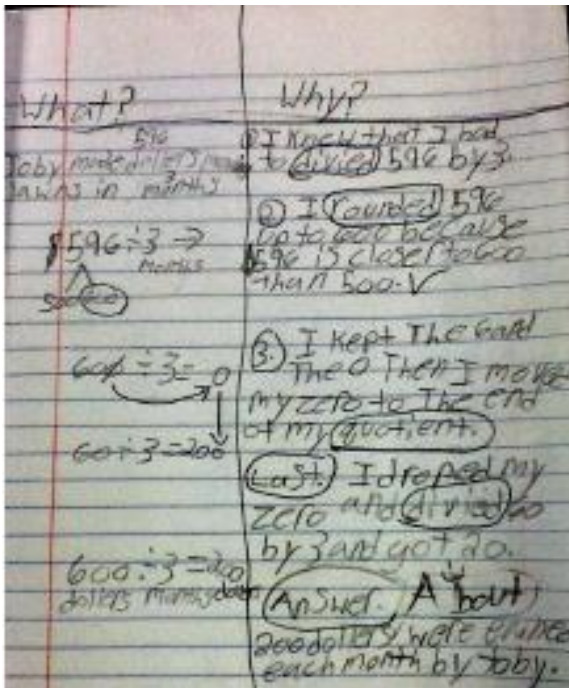 What?
596
Toby made dollers
lawns in 3 months
$596÷3→
months
500 600
600÷3=0
60÷3=200
600÷3=200
dollers months
Why?
① I knew that I had
to divied 596 by 3.
② I rounded 596
up to 600 because
$596 is closer to 600
than 500.✓
3. I kept The 6 and
The 0 Then I move
my zero to The end
of my quotient.
Last. I droped my
zero and divied 60
by 3 and got 20.
Answer. About
200 dollers were
each month by toby.